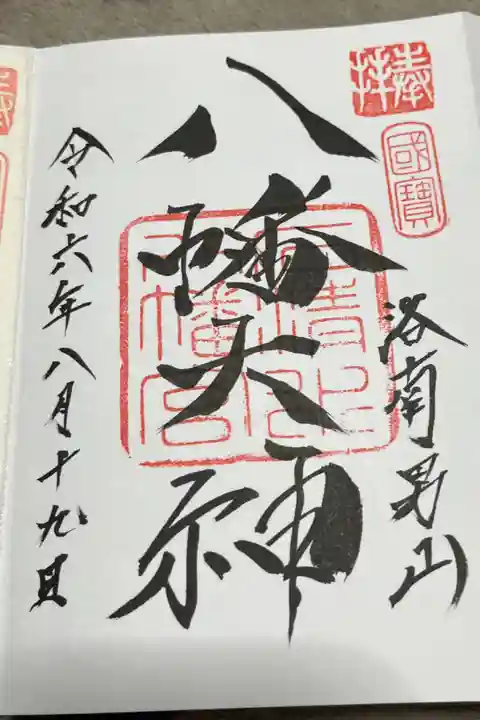 奉拝
國寶
洛南男山
八幡大神
石清水八幡宮
令和六年八月十九日